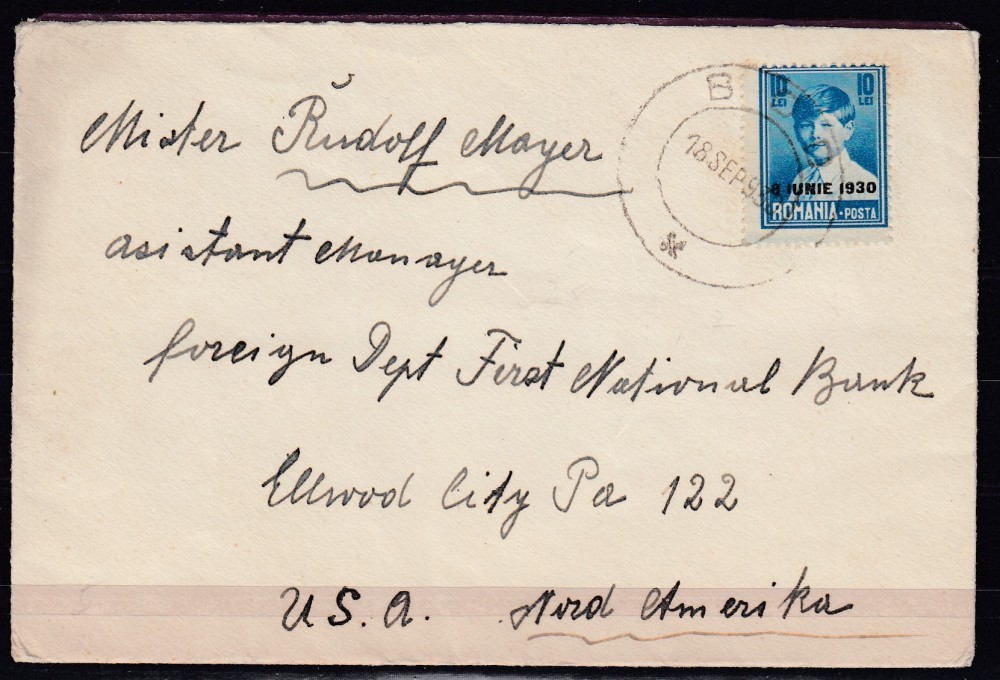 10 LEI 10 LEI
8 IUNIE 1930
ROMANIA·POSTA
B
18.SEP.93
Mister Rudolf Mayer
asistant Manager
foreign Dept First National Bank
Ellwod City Pa 122
U.S.A. Nord Amerika